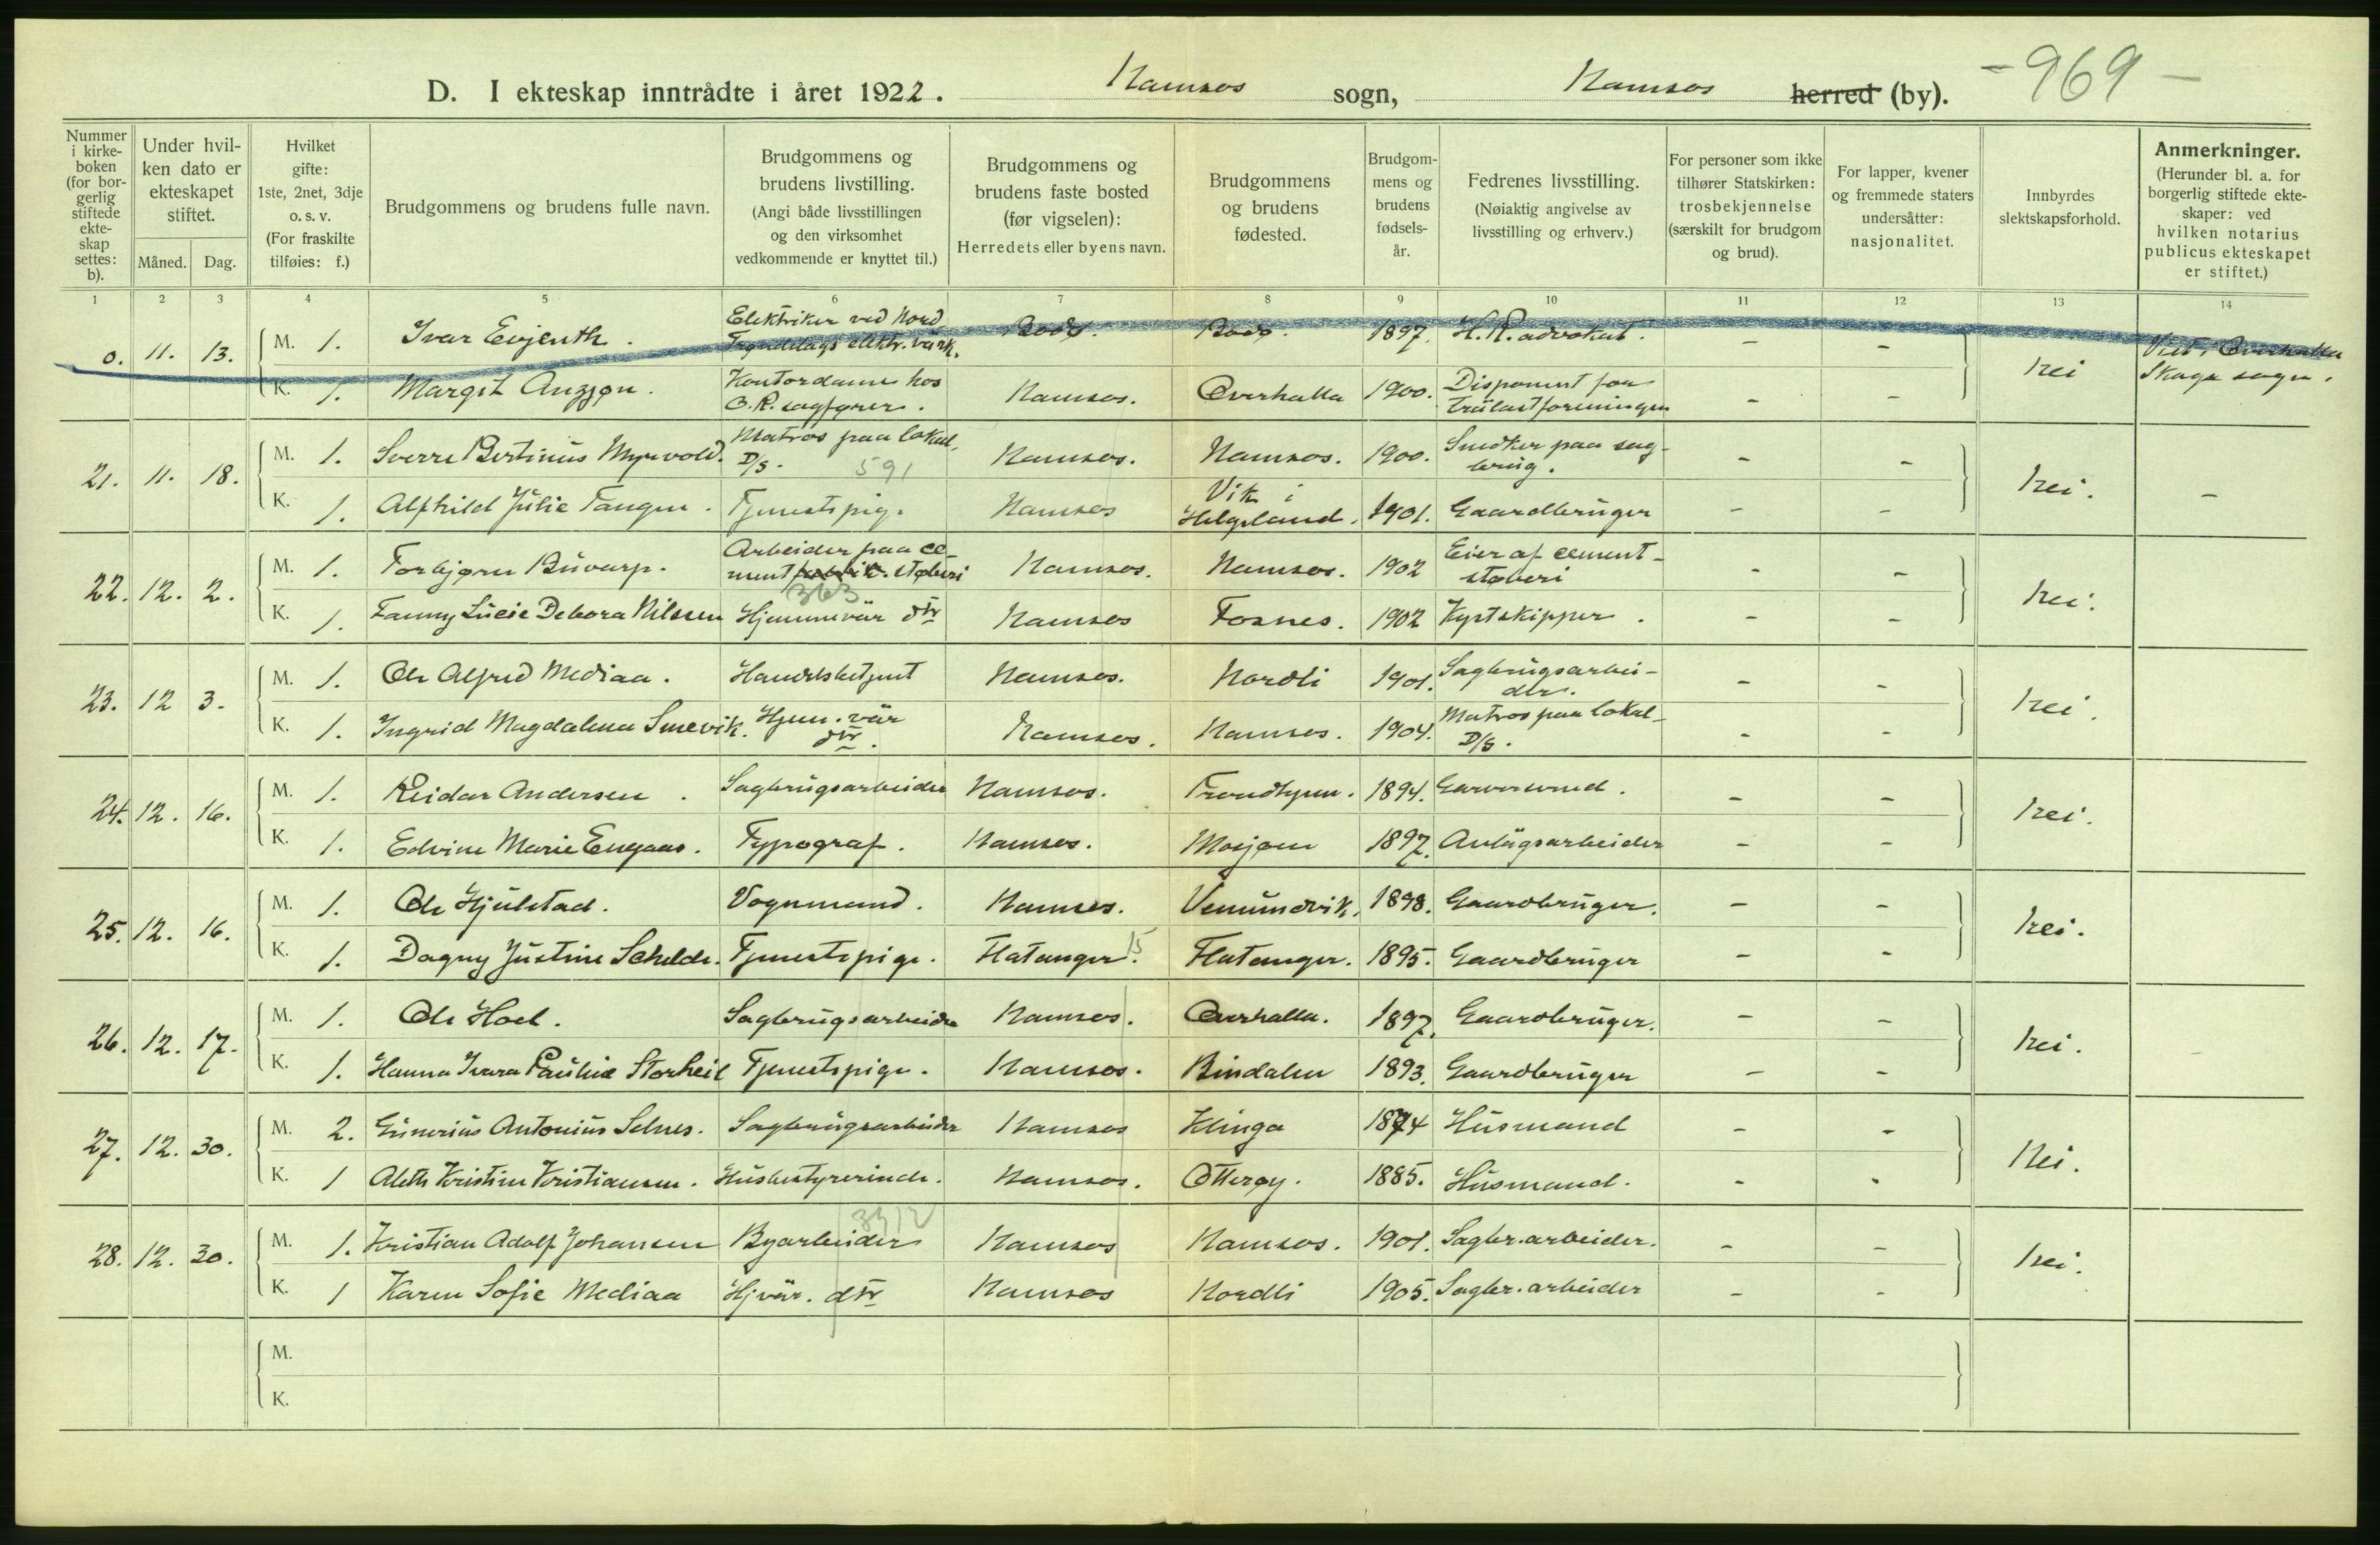 D. I ekteskap inntrådte i året 1922. Namsos sogn, Namsos herred (by). - 969 -
Nummer i kirkeboken (for borgerlig stiftede ekteskap settes: b).
Under hvilken dato er ekteskapet stiftet.
Måned. Dag.
Hvilket gifte: 1ste, 2net, 3dje o. s. v. (For fraskilte tilføies: f.)
Brudgommens og brudens fulle navn.
Brudgommens og brudens livstilling. (Angi både livsstillingen og den virksomhet vedkommende er knyttet til.)
Brudgommens og brudens faste bosted (før vigselen): Herredets eller byens navn.
Brudgommens og brudens fødested.
Brudgommens og brudens fødselsår.
Fedrenes livsstilling. (Nøiaktig angivelse av livsstilling og erhverv.)
For personer som ikke tilhører Statskirken: trosbekjennelse (særskilt for brudgom og brud).
For lapper, kvener og fremmede staters undersåtter: nasjonalitet.
Innbyrdes slektskapsforhold.
Anmerkninger. (Herunder bl. a. for borgerlig stiftede ekteskaper: ved hvilken notarius publicus ekteskapet er stiftet.)
1 2 3 4 5 6 7 8 9 10 11 12 13 14
0. 11. 13. M. 1. Ivar Evjenth. Elektriker ved Nord Trøndelags elektr. værk. Bodø. Bodø. 1897. H. R. advokat. - - Nei Viet i Overhalla Skage sogn.
K. 1. Margit Anzjøn. Kontordame hos O. R. sagfører. Namsos. Overhalla 1900. Disponent for trælastforeningen - -
21. 11. 18. M. 1. Sverre Bertinus Myrvold. Matros paa lokal D/S. 591 Namsos. Namsos. 1900. Snedker paa sagbrug. - - Nei. -
K. 1. Alfhild Julie Tangen. Tjenestepige Namsos Vik i Helgeland. 1901. Gaardbruger - -
22. 12. 2. M. 1. Torbjørn Buvarp. Arbeider paa cementfabrik. støberi 363 Namsos. Namsos. 1902 Eier af cementstøberi - - Nei.
K. 1. Fanny Lucie Debora Nilssen Hjemmevær dtr Namsos Fosnes. 1902 Kystskipper. - -
23. 12 3. M. 1. Ole Alfred Mediaa. Handelsbetjent Namsos. Nordli 1901. Sagbrugsarbeider. - - Nei.
K. 1. Ingrid Magdalena Smevik. Hjem. vær dtr. Namsos. Namsos. 1904. Matros paa lokal D/S. - -
24. 12. 16. M. 1. Reidar Andersen. Sagbrugsarbeider Namsos. Trondhjem. 1894. Garversvend. - - Nei.
K. 1. Edvine Marie Engaas. Typograf. Namsos. Mosjøen 1897. Anlægsarbeider - -
25. 12. 16. M. 1. Ole Hjulstad. Vognmand. Namsos. Vemundvik. 1898. Gaardbruger. - - Nei.
K. 1. Dagny Justine Schelde. Tjenestepige. Flatanger. 15 Flatanger. 1895. Gaardbruger - -
26. 12. 17. M. 1. Ole Hoel. Sagbrugsarbeider Namsos. Overhalla. 1897. Gaardbruger. - - Nei.
K. 1. Hanna Ivara Pauline Storheil Tjenestepige. Namsos. Bindalen 1893. Gaardbruger - -
27. 12. 30. M. 2. Gunerius Antonius Selnes. Sagbrugsarbeider Namsos Klinga 1874 Husmand - - Nei.
K. 1 Aleth Kristine Kristiansen. Husbestyrerinde. Namsos. Otterøy. 1885. Husmand. - -
28. 12. 30. M. 1. Kristian Adolf Johansen Byarbeider Namsos Namsos. 1901. Sagbr. arbeider. - - Nei.
K. 1 Karen Sofie Mediaa Hjvær. dtr Namsos Nordli 1905. Sagbr. arbeider - -
M.
K.